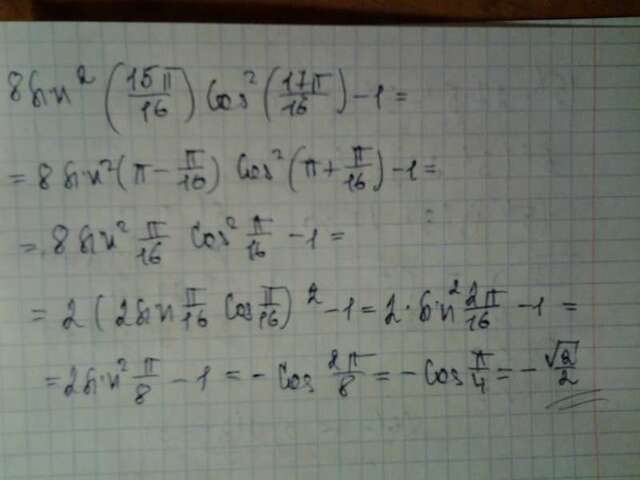 8 sin² (15π/16) cos² (17π/16) − 1 =
= 8 sin² (π − π/16) cos² (π + π/16) − 1 =
= 8 sin² π/16 cos² π/16 − 1 =
= 2 (2 sin π/16 cos π/16)² − 1 = 2 · sin² 2π/16 − 1 =
= 2 sin² π/8 − 1 = − cos 2π/8 = − cos π/4 = − √2/2